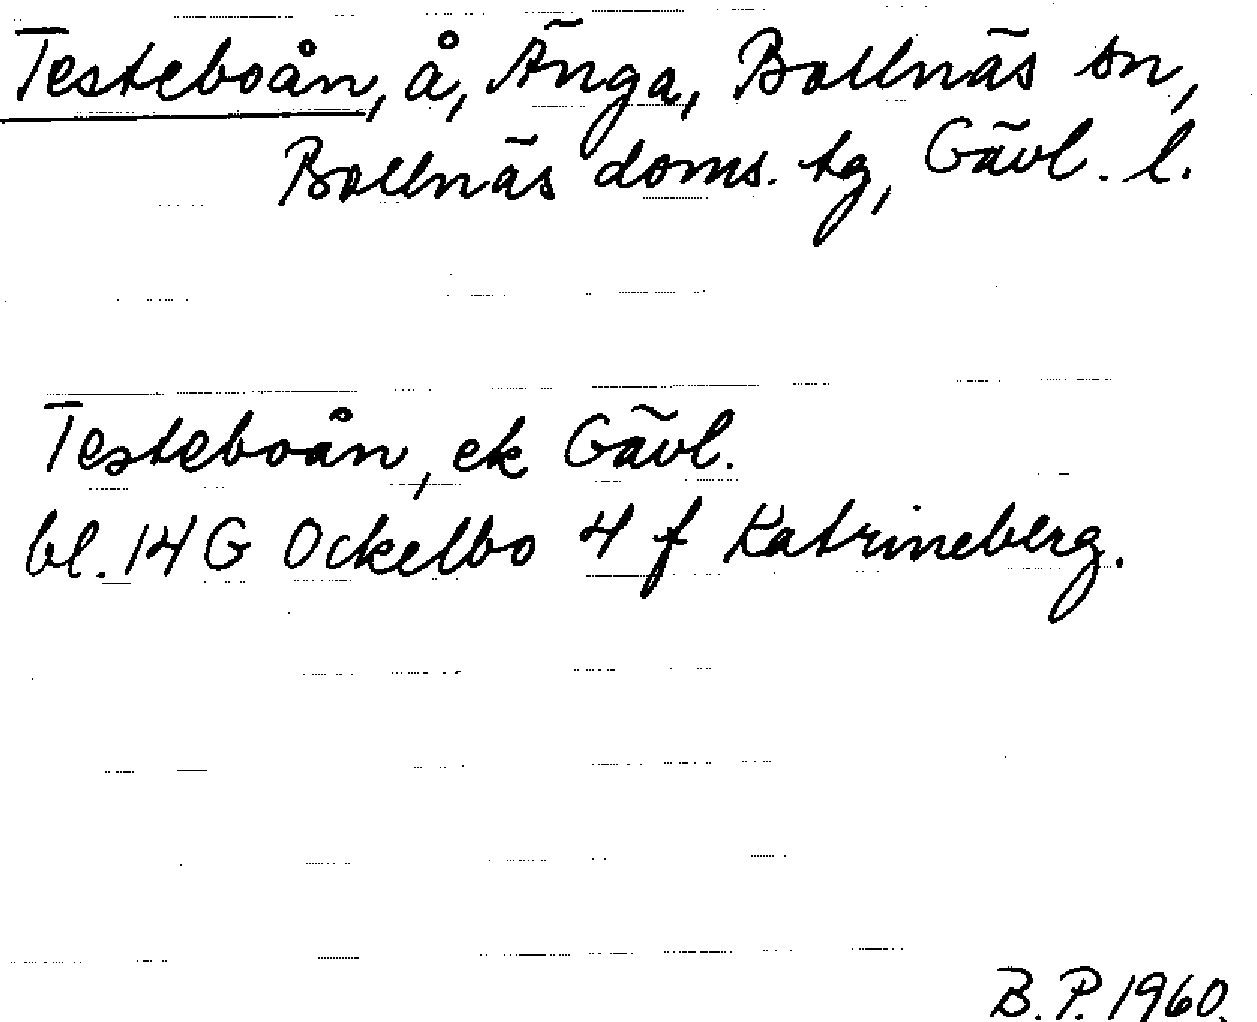 Testeboån, å, Änga, Bollnäs sn,
Bollnäs doms. tg, Gävl. l.
Testeboån, ek Gävl.
bl. 14 G Ockelbo 4 f Katrineberg.
B. P. 1960.